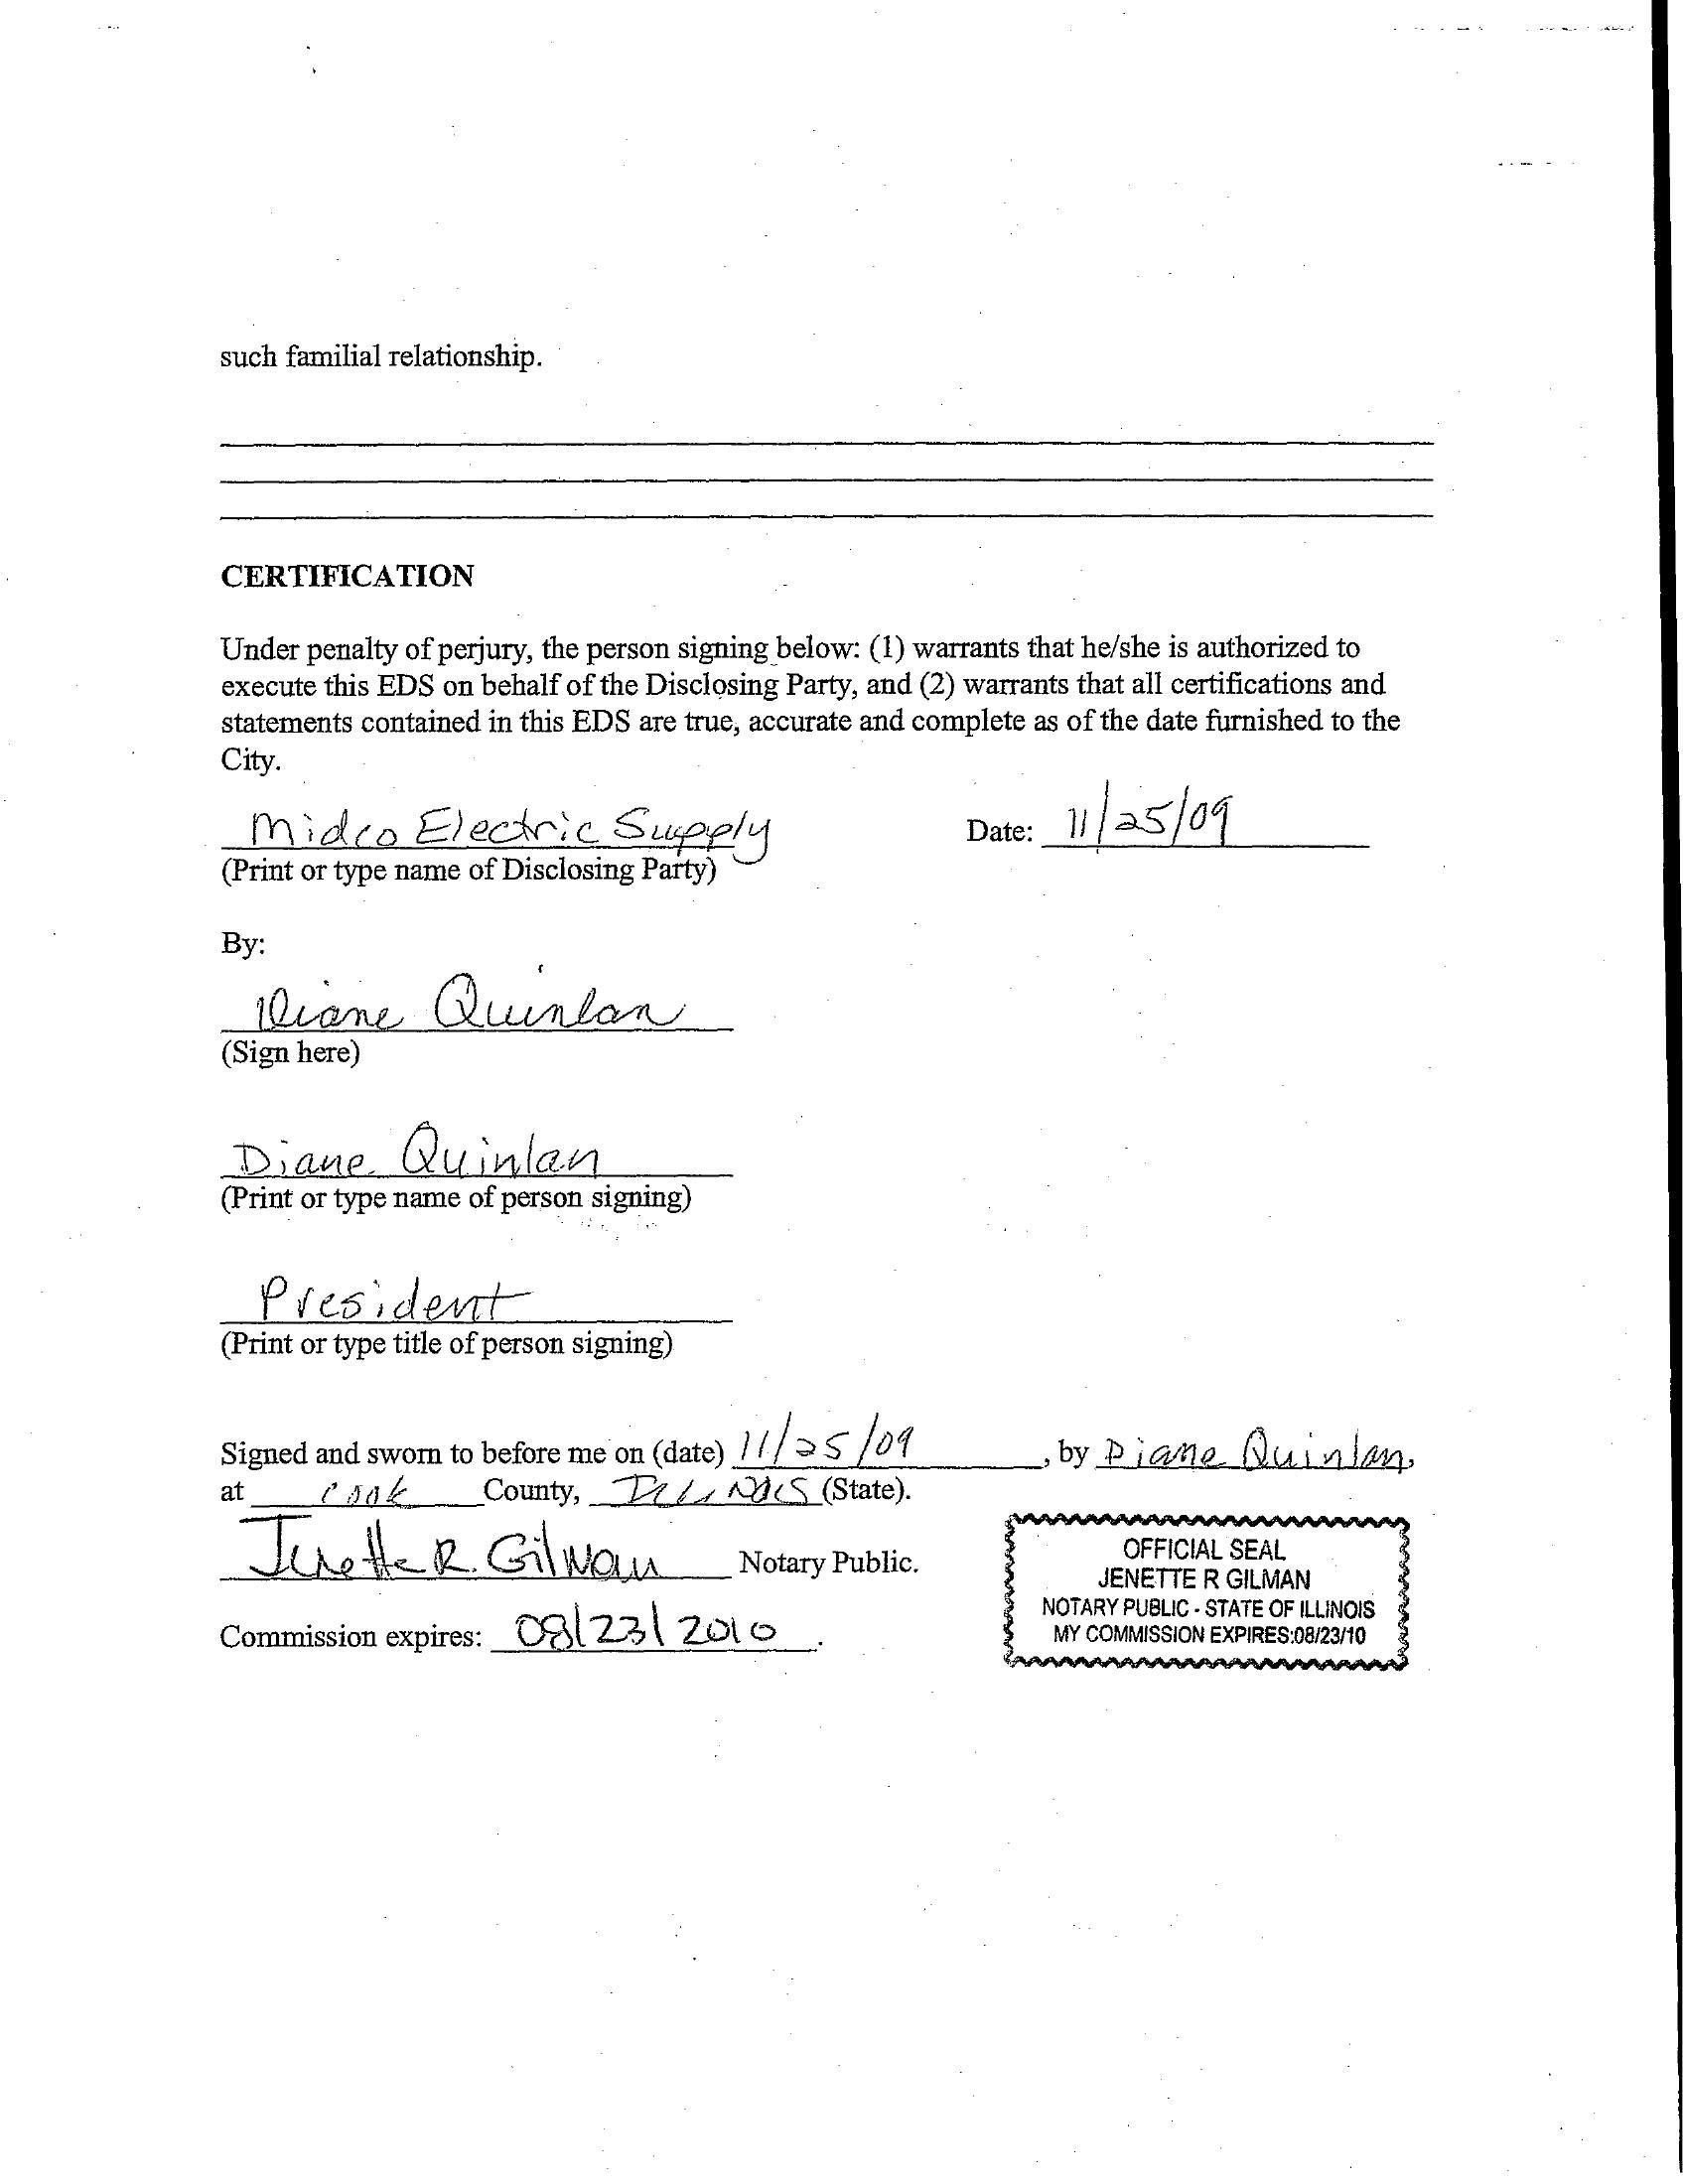 such familial relationship.
CERTIFICATION
Under penalty of perjury, the person signing below: (1) warrants that he/she is authorized to
execute this EDS on behalf of the Disclosing Party, and (2) warrants that all certifications and
statements contained in this EDS are true, accurate and complete as of the date furnished to the
City.
Midco Electric Supply Date: 11/25/09
(Print or type name of Disclosing Party)
By:
Diane Quinlan
(Sign here)
Diane Quinlan
(Print or type name of person signing)
President
(Print or type title of person signing)
Signed and sworn to before me on (date) 11/25/09, by Diane Quinlan,
at Cook County, ILLINOIS (State).
Jenette R. Gilman Notary Public.
Commission expires: 08/23/2010.
OFFICIAL SEAL
JENETTE R GILMAN
NOTARY PUBLIC - STATE OF ILLINOIS
MY COMMISSION EXPIRES:08/23/10